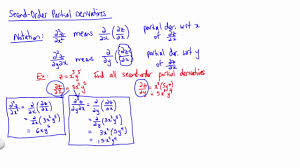 Second-Order Partial Derivatives
Notation: ∂²z/∂x² means ∂/∂x (∂z/∂x) partial der. wrt x of ∂z/∂x
∂²z/∂y∂x means ∂/∂y (∂z/∂x) partial der. wrt y of ∂z/∂x
Ex: z = x³y⁵ Find all second-order partial derivatives
∂z/∂x = 3x²y⁵
∂z/∂y = x³(5y⁴) = 5x³y⁴
∂²z/∂x² = ∂/∂x (∂z/∂x)
= ∂/∂x (3x²y⁵)
= 6xy⁵
∂²z/∂y∂x = ∂/∂y (∂z/∂x)
= ∂/∂y (3x²y⁵)
= 3x²(5y⁴)
= 15x²y⁴